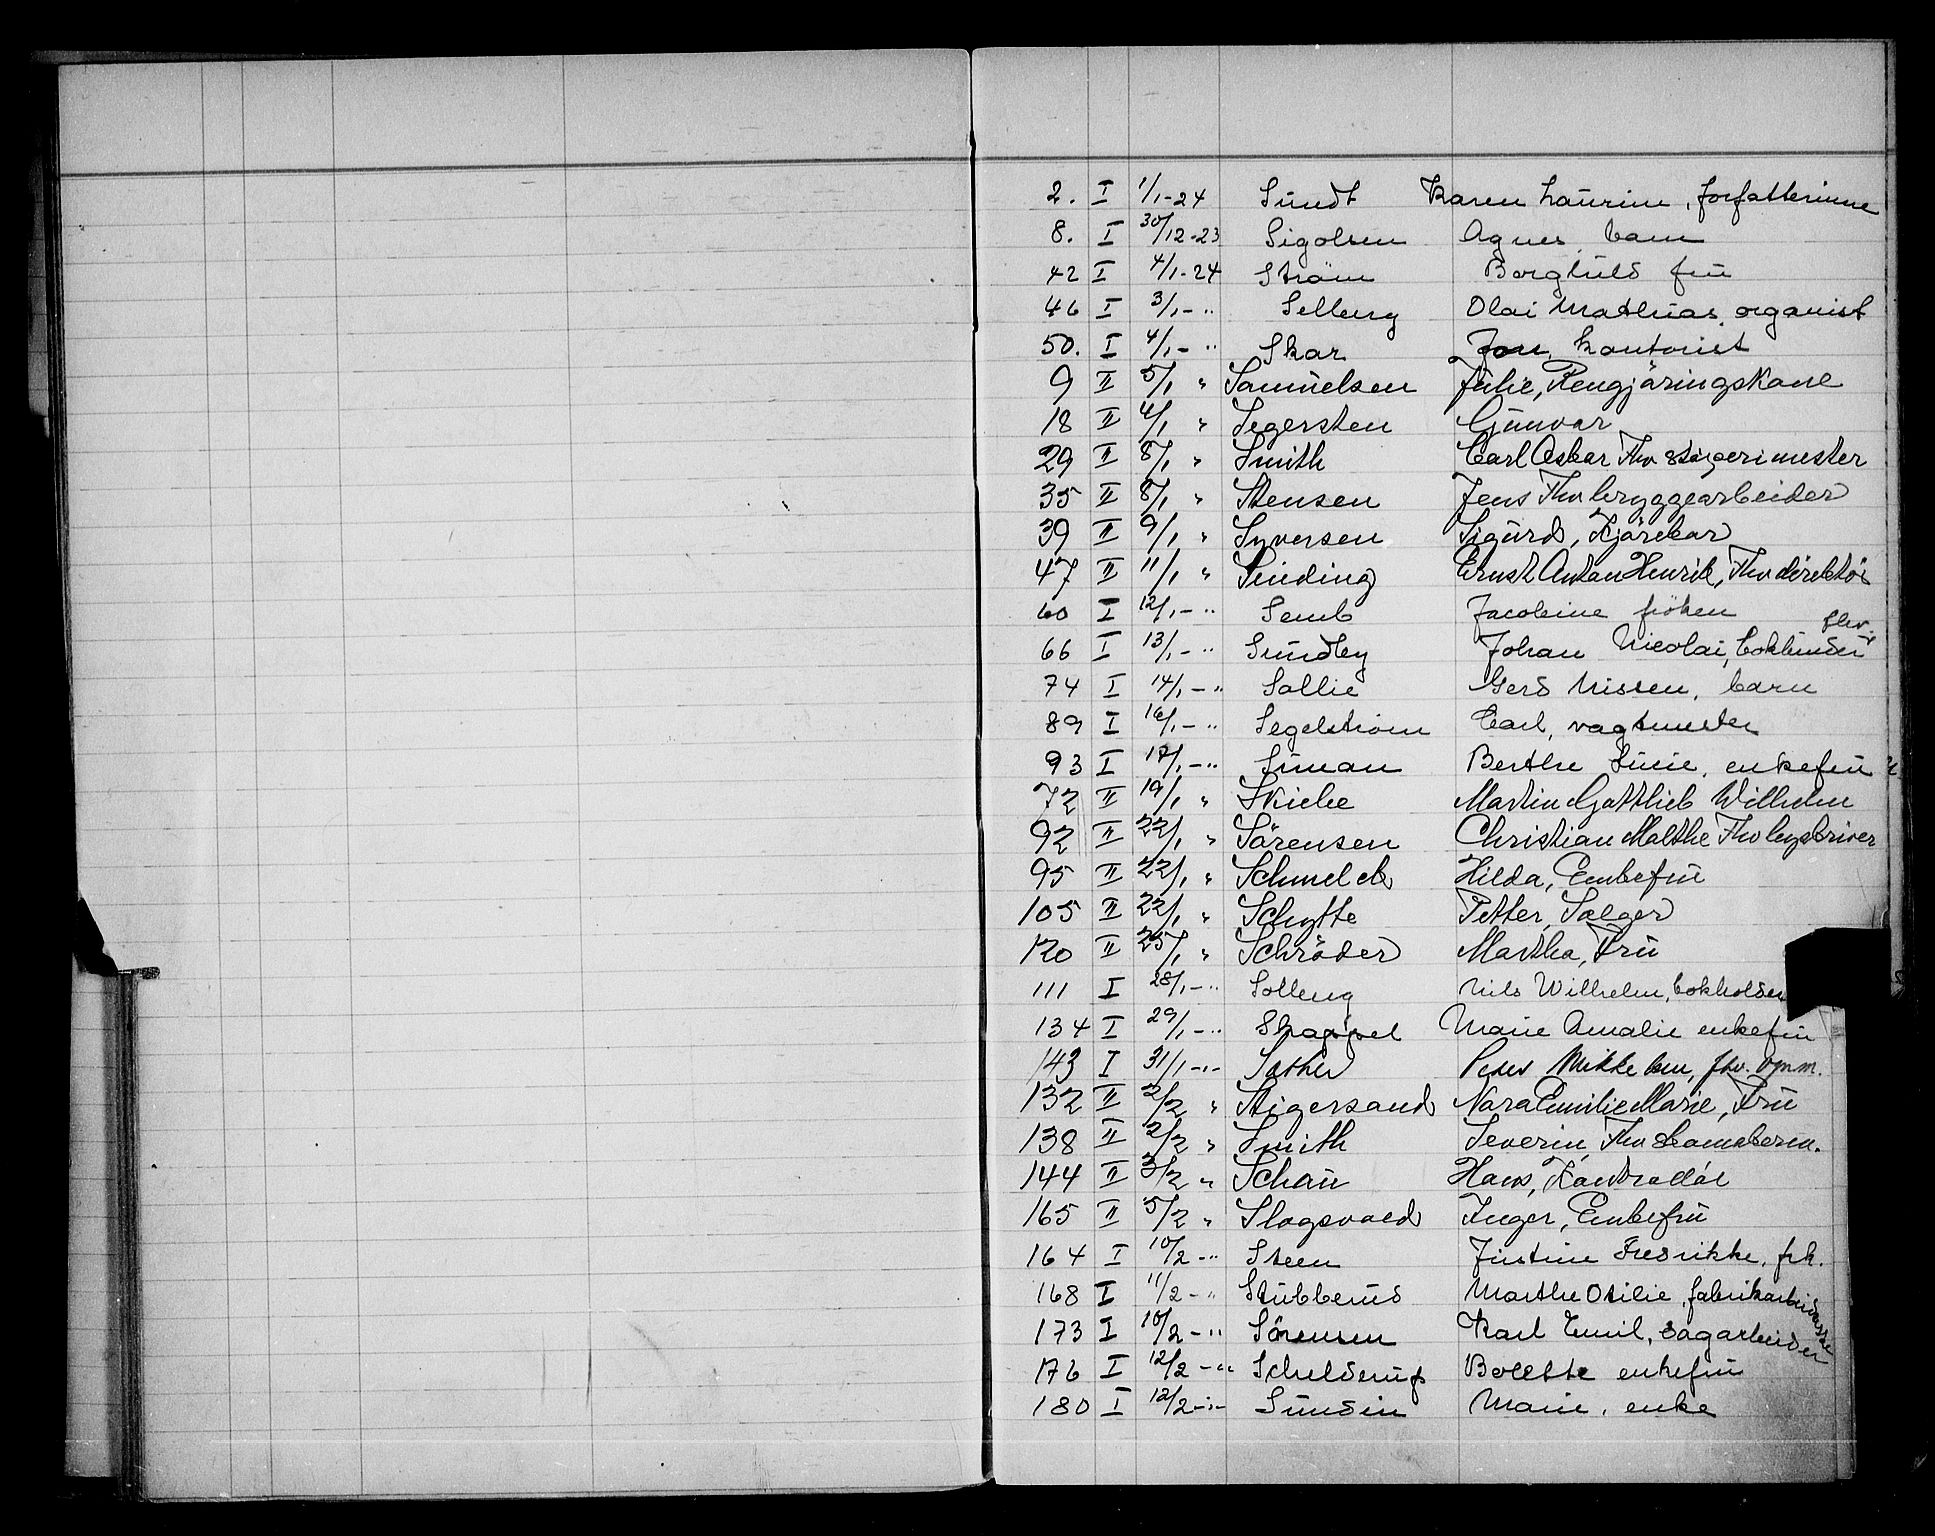 2. I 1/1-24 Sundt Karen Laurine, forfatterinne
8. I 30/12-23 Sigolsen Agnes, barn
42 I 4/1-24 Ström Borghild fru
46 I 3/1-" Selberg Olai Mathias, organist
50. I 4/1-" Skar Jon, kontorist
9 II 5/1 " Samuelsen Julie, Rengjöringskone
18 II 4/1 " Segersten Gunvor
29 II 8/1 " Smith Carl Oskar Fhv stigerimester
35 II 8/1 " Stensen Jens Fhv bryggearbeider
39 II 9/1 " Syversen Sigurd, Kjörekar
47 II 11/1 " Sinding Ernst Anton Henrik, Fhv direktör
60 I 12/1-" Semb Jacobine fröken
66 I 13/1-" Sundby Johan Nicolai, fhv. bokbinder
74 I 14/1-" Sollie Gerd Nissen, barn
89 I 16/1-" Segelstrom Carl, vagtmester
93 I 17/1-" Siman Berthe Lucie, enkefru
72 II 19/1 " Skiebe Martin Gottlieb Wilhelm
92 II 22/1 " Sörensen Christian Malthe Fhv byskriver
95 II 22/1 " Schmelck Hilda, Enkefru
105 II 22/1 " Schytte Petter, Selger
120 II 25/1 " Schröder Martha, Fru
111 I 28/1-" Solberg Nils Wilhelm, bokholder
134 I 29/1-" Skappel Marie Amalie enkefru
143 I 31/1-"- Sæther Peder Mikkelsen, fhv.
132 II 2/2 " Stigersand Nora Emilie Marie, Fru
138 II 2/2 " Smith Severin, Fhv
144 II 3/2 " Schau Hans, Kontrollör
165 II 5/2 " Slogsvold Inger, Enkefru
164 I 10/2-" Steen Justine Fredrikke, frk.
168 I 11/2-" Stubberud Marthe Otilie, fabrikarbeiderske
173 I 10/2-" Sörensen Karl Emil, sagarbeider
176 I 12/2-" Schelderup Bolette enkefru
180 I 12/2-"- Sundin Marie, enke